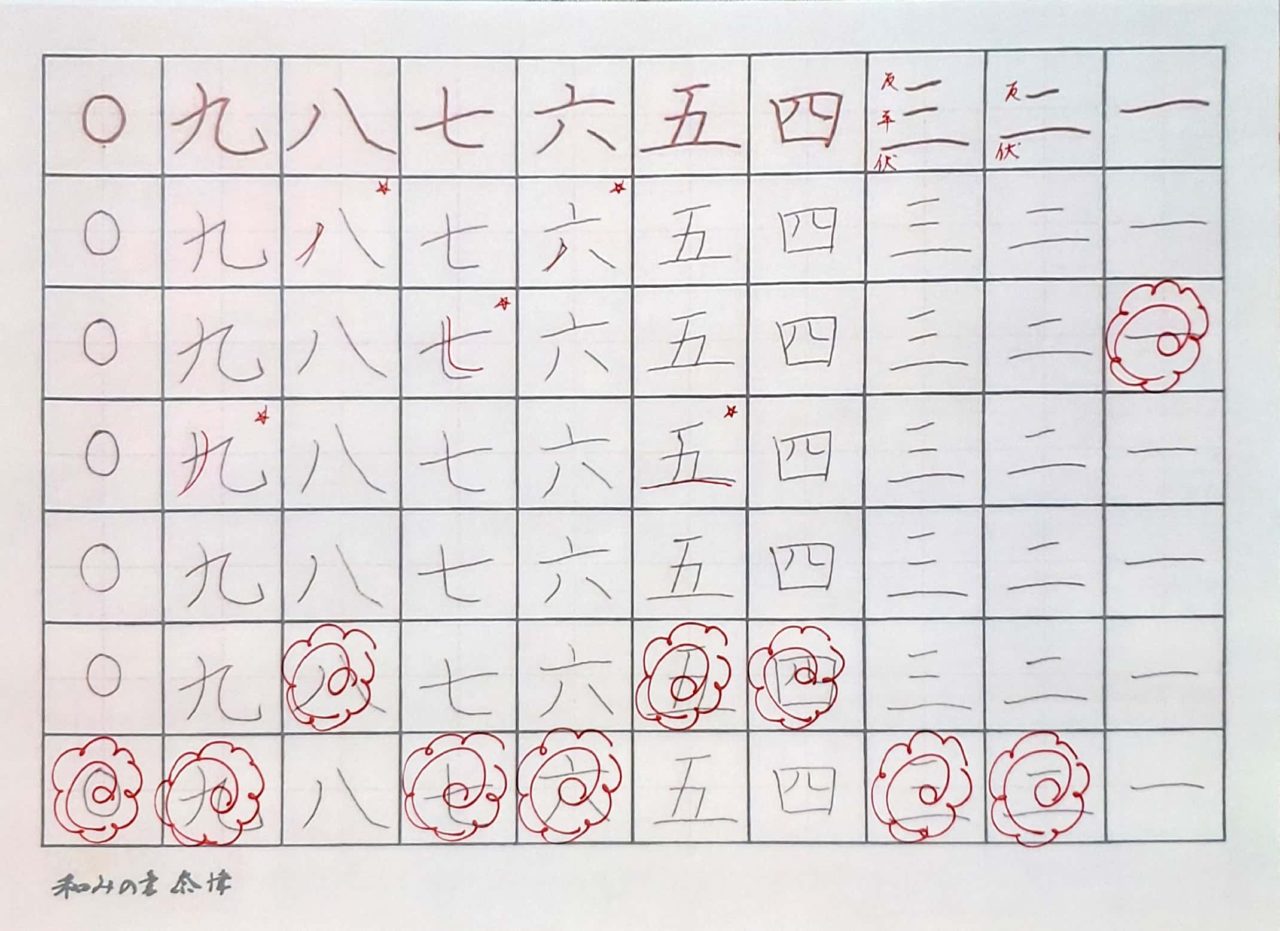 一一一一一一一
二二二二二二二
反
伏
三三三三三三三
反
平
伏
四四四四四四四
五五五五五五五
六六六六六六六
七七七七七七七
八八八八八八八
九九九九九九九
〇〇〇〇〇〇〇
和みの書